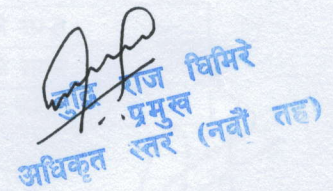 बुद्धि राज घिमिरे
प्रमुख
अधिकृत स्तर (नवौं तह)